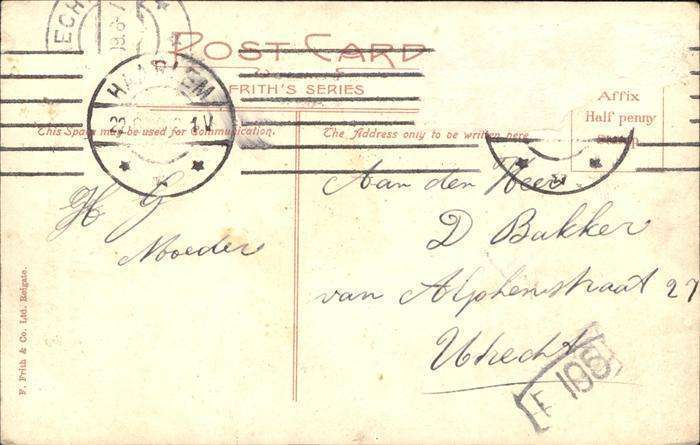 POST CARD
FRITH'S SERIES
HAARLEM
Affix
Half penny
This Space may be used for Communication.
The Address only to be written here
H G
Moeder
Aan den Heer
D Bakker
van Alphenstraat 27
Utrecht
F 106
F. Frith & Co. Ltd. Reigate.